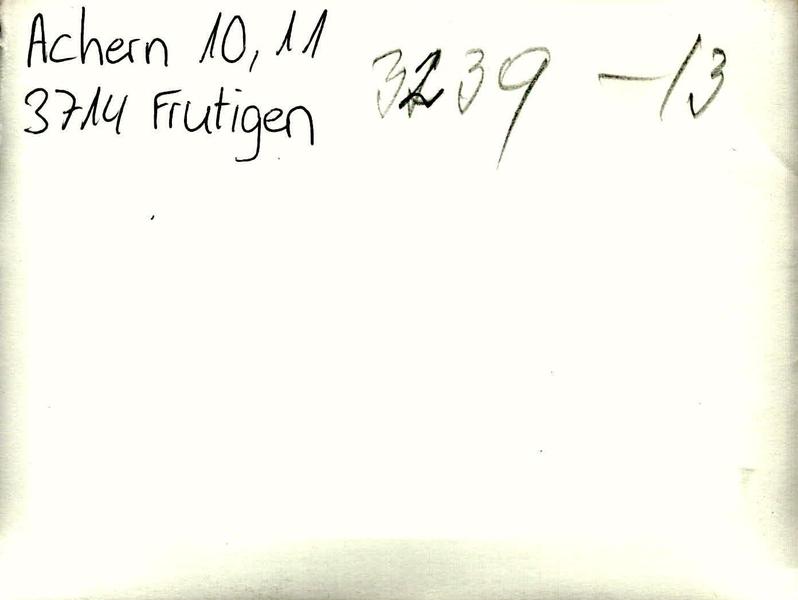 Achern 10, 11
3714 Frutigen
3239 -13